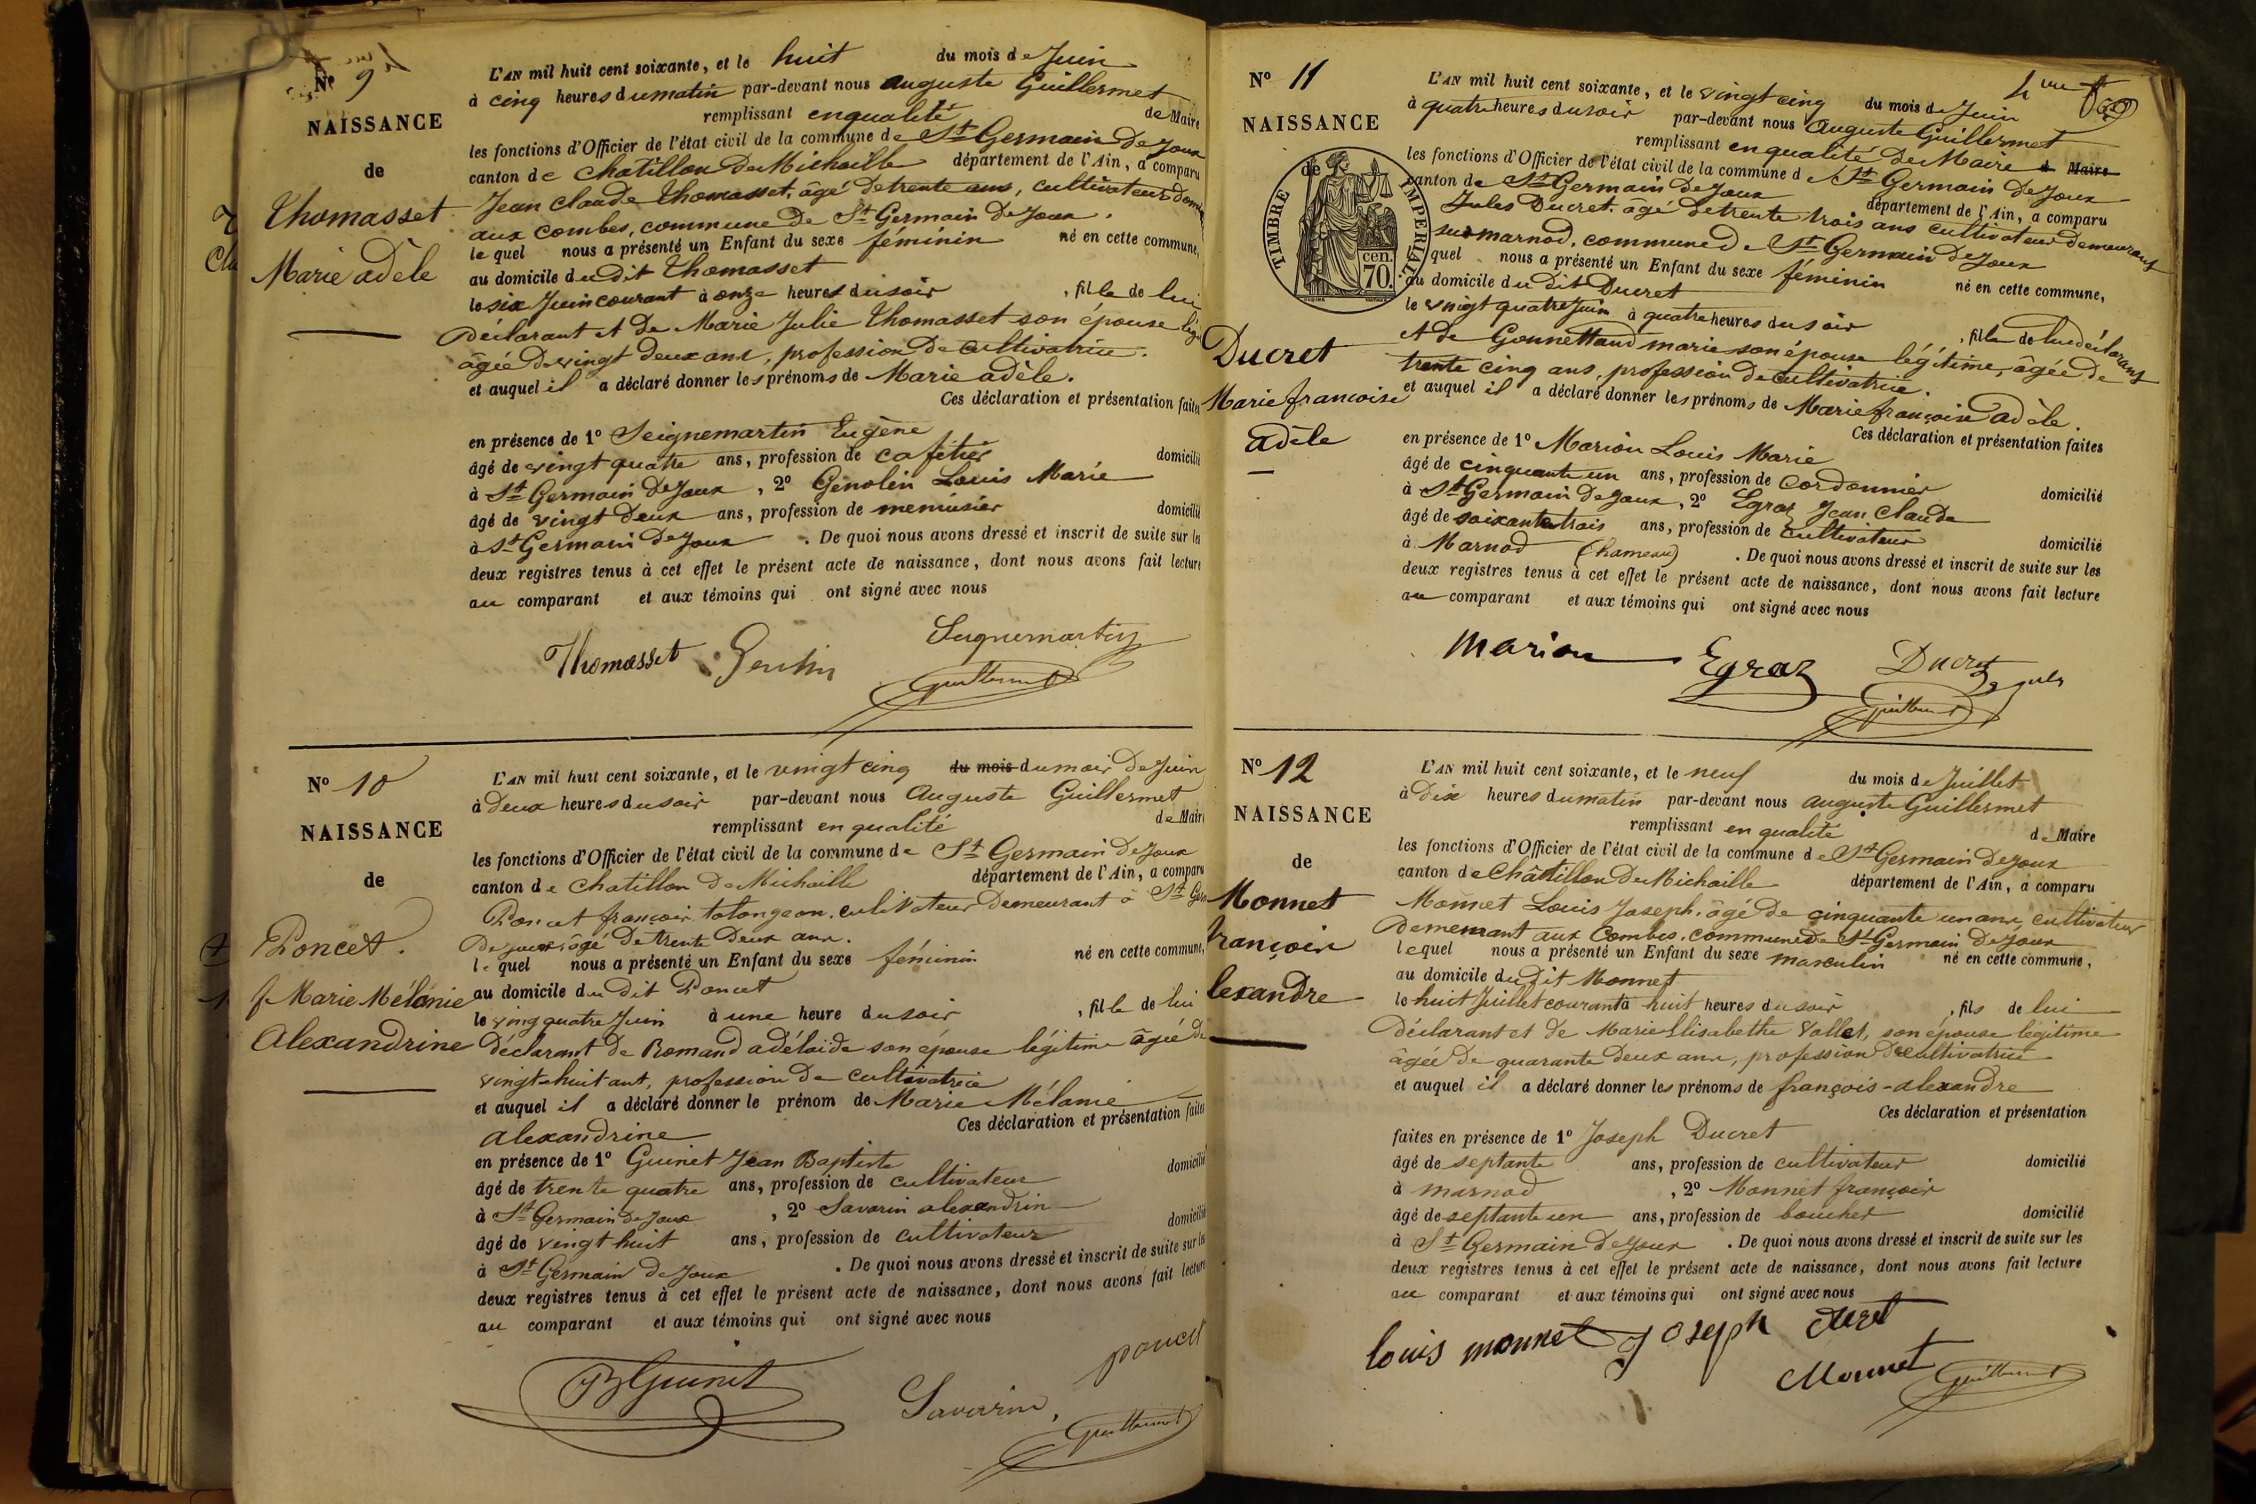 N° 9
NAISSANCE
de
Thomasset
Marie adèle
L'AN mil huit cent soixante, et le huit du mois de Juin
à cinq heures du matin par-devant nous auguste Guillermet
remplissant en qualité de Maire
les fonctions d'Officier de l'état civil de la commune de St Germain De Joux
canton de Chatillon De Michaille département de l'Ain, a comparu
Jean Claude Thomasset, âgé de trente ans, cultivateur
aux Combes, commune De St Germain De Joux.
le quel nous a présenté un Enfant du sexe féminin né en cette commune,
au domicile du dit Thomasset
le six Juin courant à onze heures du soir, fille de lui
Déclarant et De Marie Julie Thomasset son épouse
âgée De vingt deux ans, profession De cultivatrice.
et auquel il a déclaré donner les prénoms de Marie adèle.
Ces déclaration et présentation faites
en présence de 1° Seignemartin Eugène
âgé de vingt quatre ans, profession de cafetier domicilié
à St Germain De Joux, 2° Genolin Louis Marie
âgé de vingt Deux ans, profession de menuisier domicilié
à St Germain De Joux. De quoi nous avons dressé et inscrit de suite sur les
deux registres tenus à cet effet le présent acte de naissance, dont nous avons fait lecture
au comparant et aux témoins qui ont signé avec nous
Thomasset Seignemartin
Guillermet
N° 10
NAISSANCE
de
Poncet.
Marie Mélanie
Alexandrine
L'AN mil huit cent soixante, et le vingt cinq du mois du mois De Juin
à Deux heures du soir par-devant nous Auguste Guillermet
remplissant en qualité de Maire
les fonctions d'Officier de l'état civil de la commune de St Germain De Joux
canton de Chatillon De Michaille département de l'Ain, a comparu
Poncet françois cultivateur Demeurant à St
De Joux âgé De trente Deux ans.
le quel nous a présenté un Enfant du sexe féminin né en cette commune,
au domicile du Dit Poncet
le vingt quatre Juin à une heure du soir, fille de lui
Déclarant De Romand adélaïde son épouse légitime âgée de
vingt huit ans, profession De cultivatrice
et auquel il a déclaré donner le prénom de Marie Mélanie
Alexandrine Ces déclaration et présentation faites
en présence de 1° Guinet Jean Baptiste
âgé de trente quatre ans, profession de cultivateur domicilié
à St Germain De Joux, 2° Savarin alexandrin
âgé de vingt huit ans, profession de cultivateur domicilié
à St Germain De Joux. De quoi nous avons dressé et inscrit de suite sur les
deux registres tenus à cet effet le présent acte de naissance, dont nous avons fait lecture
au comparant et aux témoins qui ont signé avec nous
poncet
B Guinet Savarin,
Guillermet
N° 11
NAISSANCE
de
TIMBRE IMPERIAL
cen.
70.
Ducret
Marie francoise
adèle
L'AN mil huit cent soixante, et le vingt cinq du mois de Juin
à quatre heures du soir par-devant nous Auguste Guillermet
remplissant en qualité De Maire de Maire
les fonctions d'Officier de l'état civil de la commune de St Germain De Joux
canton de St Germain De Joux département de l'Ain, a comparu
Jules Ducret. âgé de trente trois ans cultivateur Demeurant
sur marnod, commune De St Germain De Joux
quel nous a présenté un Enfant du sexe féminin né en cette commune,
au domicile du Dit Ducret
le vingt quatre Juin à quatre heures du soir, fille de lui déclarant
et De Gonnettand marie son épouse légitime, âgée de
trente cinq ans, profession De cultivatrice.
et auquel il a déclaré donner les prénoms de Marie françoise adèle.
Ces déclaration et présentation faites
en présence de 1° Marion Louis Marie
âgé de cinquante un ans, profession de Cordonnier domicilié
à St Germain De Joux, 2° Egraz Jean Claude
âgé de soixante trois ans, profession de cultivateur domicilié
à Marnod (hameau). De quoi nous avons dressé et inscrit de suite sur les
deux registres tenus à cet effet le présent acte de naissance, dont nous avons fait lecture
au comparant et aux témoins qui ont signé avec nous
Marion Egraz Ducret Jules
Guillermet
N° 12
NAISSANCE
de
Monnet
françois
lexandre
L'AN mil huit cent soixante, et le neuf du mois de Juillet
à Dix heures du matin par-devant nous auguste Guillermet
remplissant en qualité de Maire
les fonctions d'Officier de l'état civil de la commune de St Germain De Joux
canton de Châtillon De Michaille département de l'Ain, a comparu
Monnet Louis Joseph, âgé De cinquante un ans, cultivateur
Demeurant aux Combes, commune De St Germain De Joux
lequel nous a présenté un Enfant du sexe masculin né en cette commune,
au domicile du Dit Monnet
le huit Juillet courant à huit heures du soir, fils de lui
Déclarant et de Marie Elisabethe Vallet, son épouse légitime
âgée De quarante deux ans, profession De cultivatrice
et auquel il a déclaré donner les prénoms de françois-alexandre
Ces déclaration et présentation
faites en présence de 1° Joseph Ducret
âgé de septante ans, profession de cultivateur domicilié
à marnod, 2° Monnet françois
âgé de septante un ans, profession de boucher domicilié
à St Germain De Joux. De quoi nous avons dressé et inscrit de suite sur les
deux registres tenus à cet effet le présent acte de naissance, dont nous avons fait lecture
au comparant et aux témoins qui ont signé avec nous
louis monnet Joseph
Monnet Guillermet